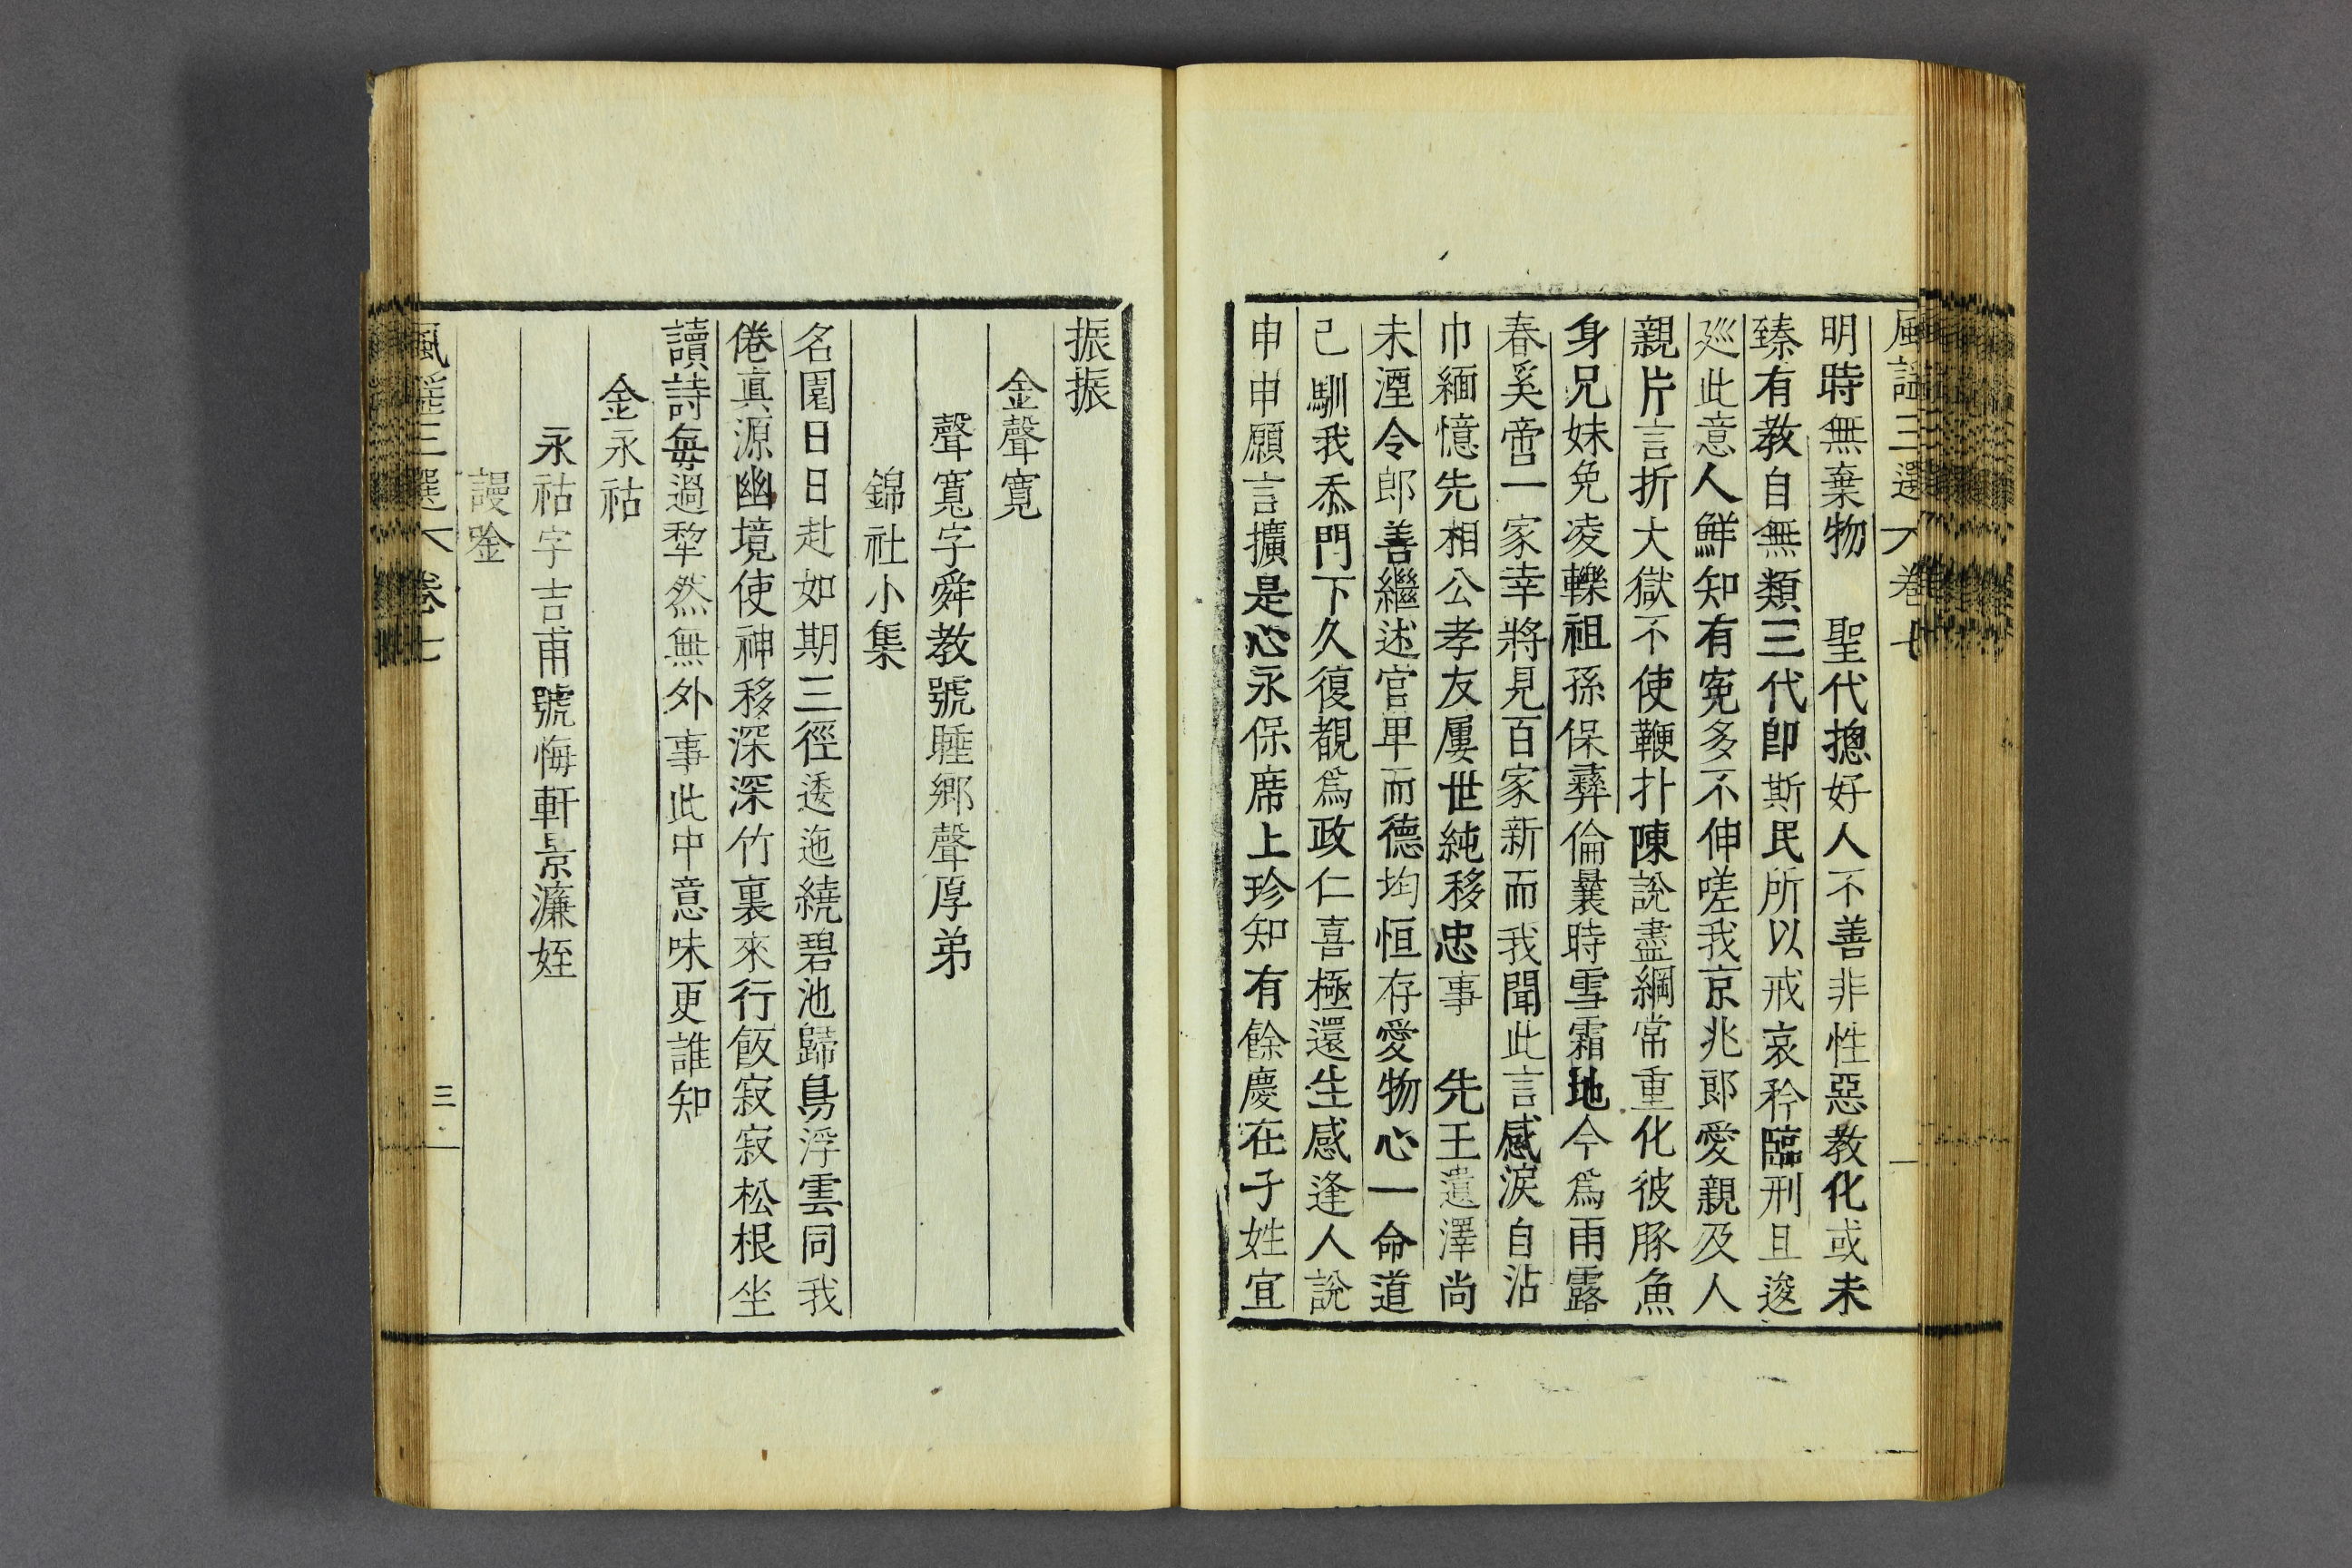 風謠三選 卷七
明時無棄物　聖代摠好人不善非性惡教化或未
臻有教自無類三代卽斯民所以戒哀矜臨刑且逡
廵此意人鮮知有寃多不伸嗟我京兆郎愛親及人
親片言折大獄不使鞭扑陳說盡綱常重化彼豚魚
身兄妹免凌轢祖孫保彛倫曩時雪霜地今爲雨露
春奚啻一家幸將見百家新而我聞此言感淚自沾
巾緬憶先相公孝友屢世純移忠事　先王遺澤尚
未湮令郎善繼述官卑而德均恒存愛物心一命道
己馴我忝門下久復覩爲政仁喜極還生感逢人說
申申願言擴是心永保席上珍知有餘慶在子姓宜
振振
金聲寬
聲寬字舜教號睡鄉聲厚弟
錦社小集
名園日日赴如期三徑逶迤繞碧池歸鳥浮雲同我
倦眞源幽境使神移深深竹裏來行飯寂寂松根坐
讀詩每過犂然無外事此中意味更誰知
金永祜
永祜字吉甫號悔軒景濂姪
謾唫
風謠三選 卷七
三